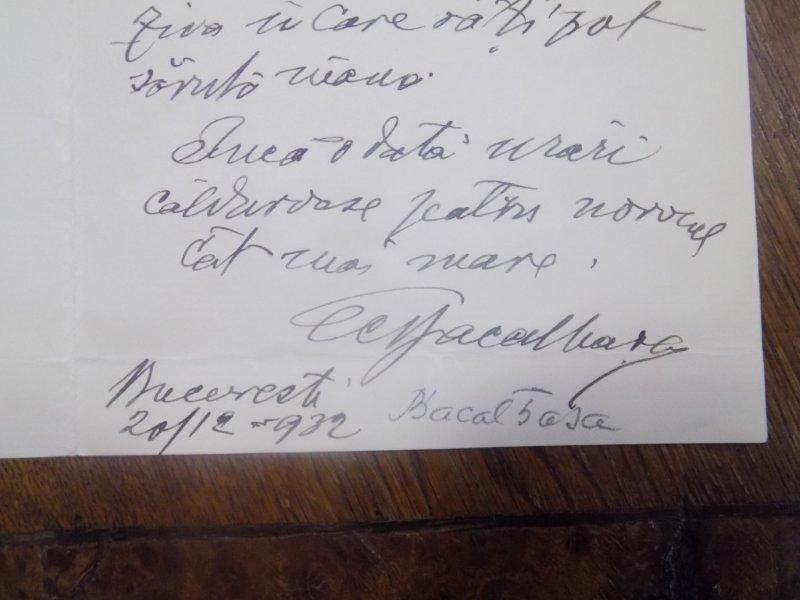 ziua în care vă pot
săruta mâna.
Încă o dată urări
călduroase pentru noroc
cât mai mare.
C Bacalbașa
București
20/12 932 Bacalbașa